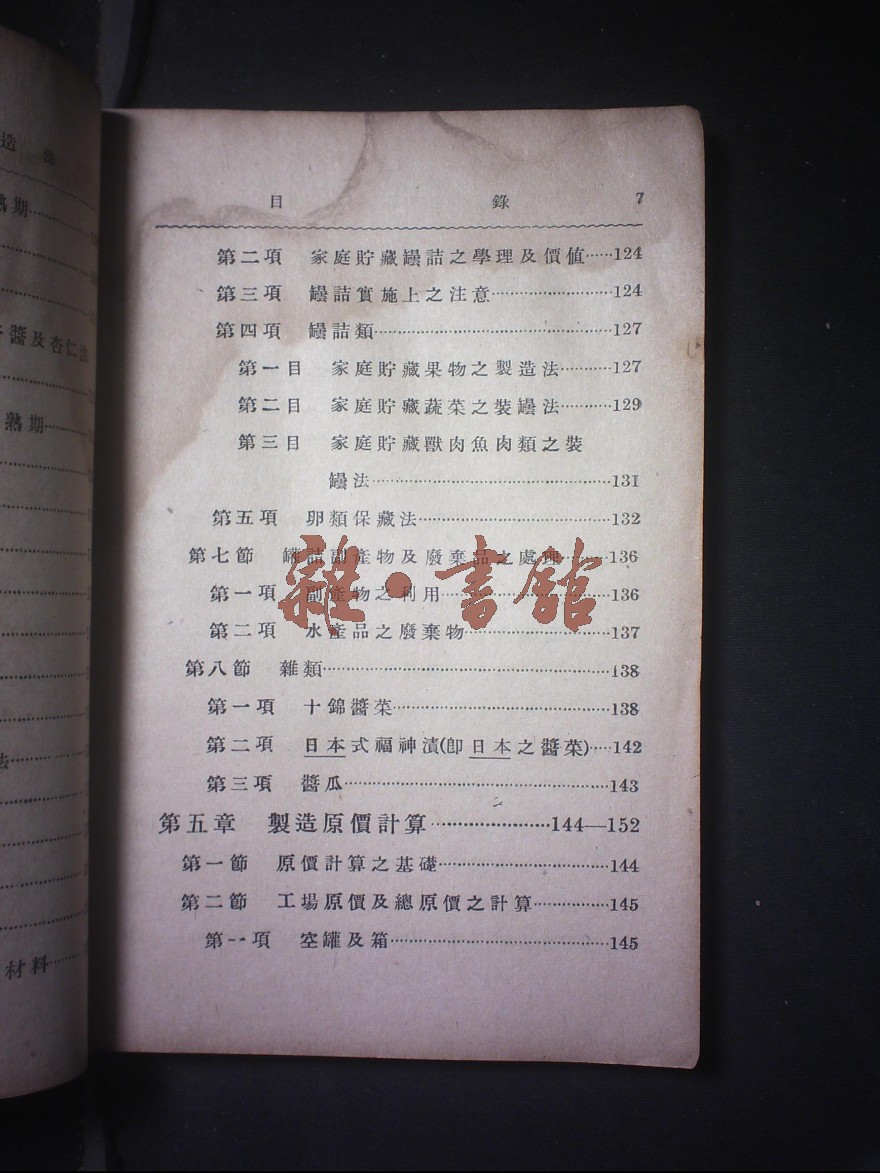 造 法
熟期
醬及杏仁油
熟期
法
材料
目 錄 7
第二項 家庭貯藏罎詰之學理及價値……124
第三項 罎詰實施上之注意……124
第四項 罎詰類……127
第一目 家庭貯藏果物之製造法……127
第二目 家庭貯藏蔬菜之裝罎法……129
第三目 家庭貯藏獸肉魚肉類之裝
罎法……131
第五項 卵類保藏法……132
第七節 罐詰副產物及廢棄品之處理……136
第一項 副產物之利用……136
第二項 水產品之廢棄物……137
第八節 雜類……138
第一項 十錦醬菜……138
第二項 日本式福神漬(卽日本之醬菜)……142
第三項 醬瓜……143
第五章 製造原價計算……144—152
第一節 原價計算之基礎……144
第二節 工場原價及總原價之計算……145
第一項 空罐及箱……145
雜·書館